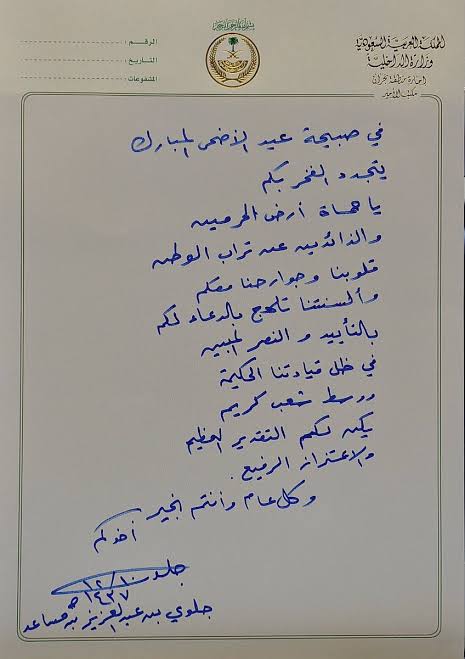 بسم الله الرحمن الرحيم
المملكة العربية السعودية
وزارة الداخلية
إمارة منطقة نجران
مكتب الأمير
الرقم :
التاريخ :
المشفوعات :
في صبيحة عيد الأضحى المبارك
يتجدد الفخر بكم
يا حماة أرض الحرمين
والذائدين عن تراب الوطن
قلوبنا وجوارحنا معكم
وألسنتنا تلهج بالدعاء لكم
بالتأييد والنصر المبين
في ظل قيادتنا الحكيمة
ووسط شعب كريم
يكن لكم التقدير العظيم
والاعتزاز الرفيع .
وكل عام وأنتم بخير
أخوكم
١٢/١٠
١٤٣٧هـ
جلوي بن عبدالعزيز بن مساعد